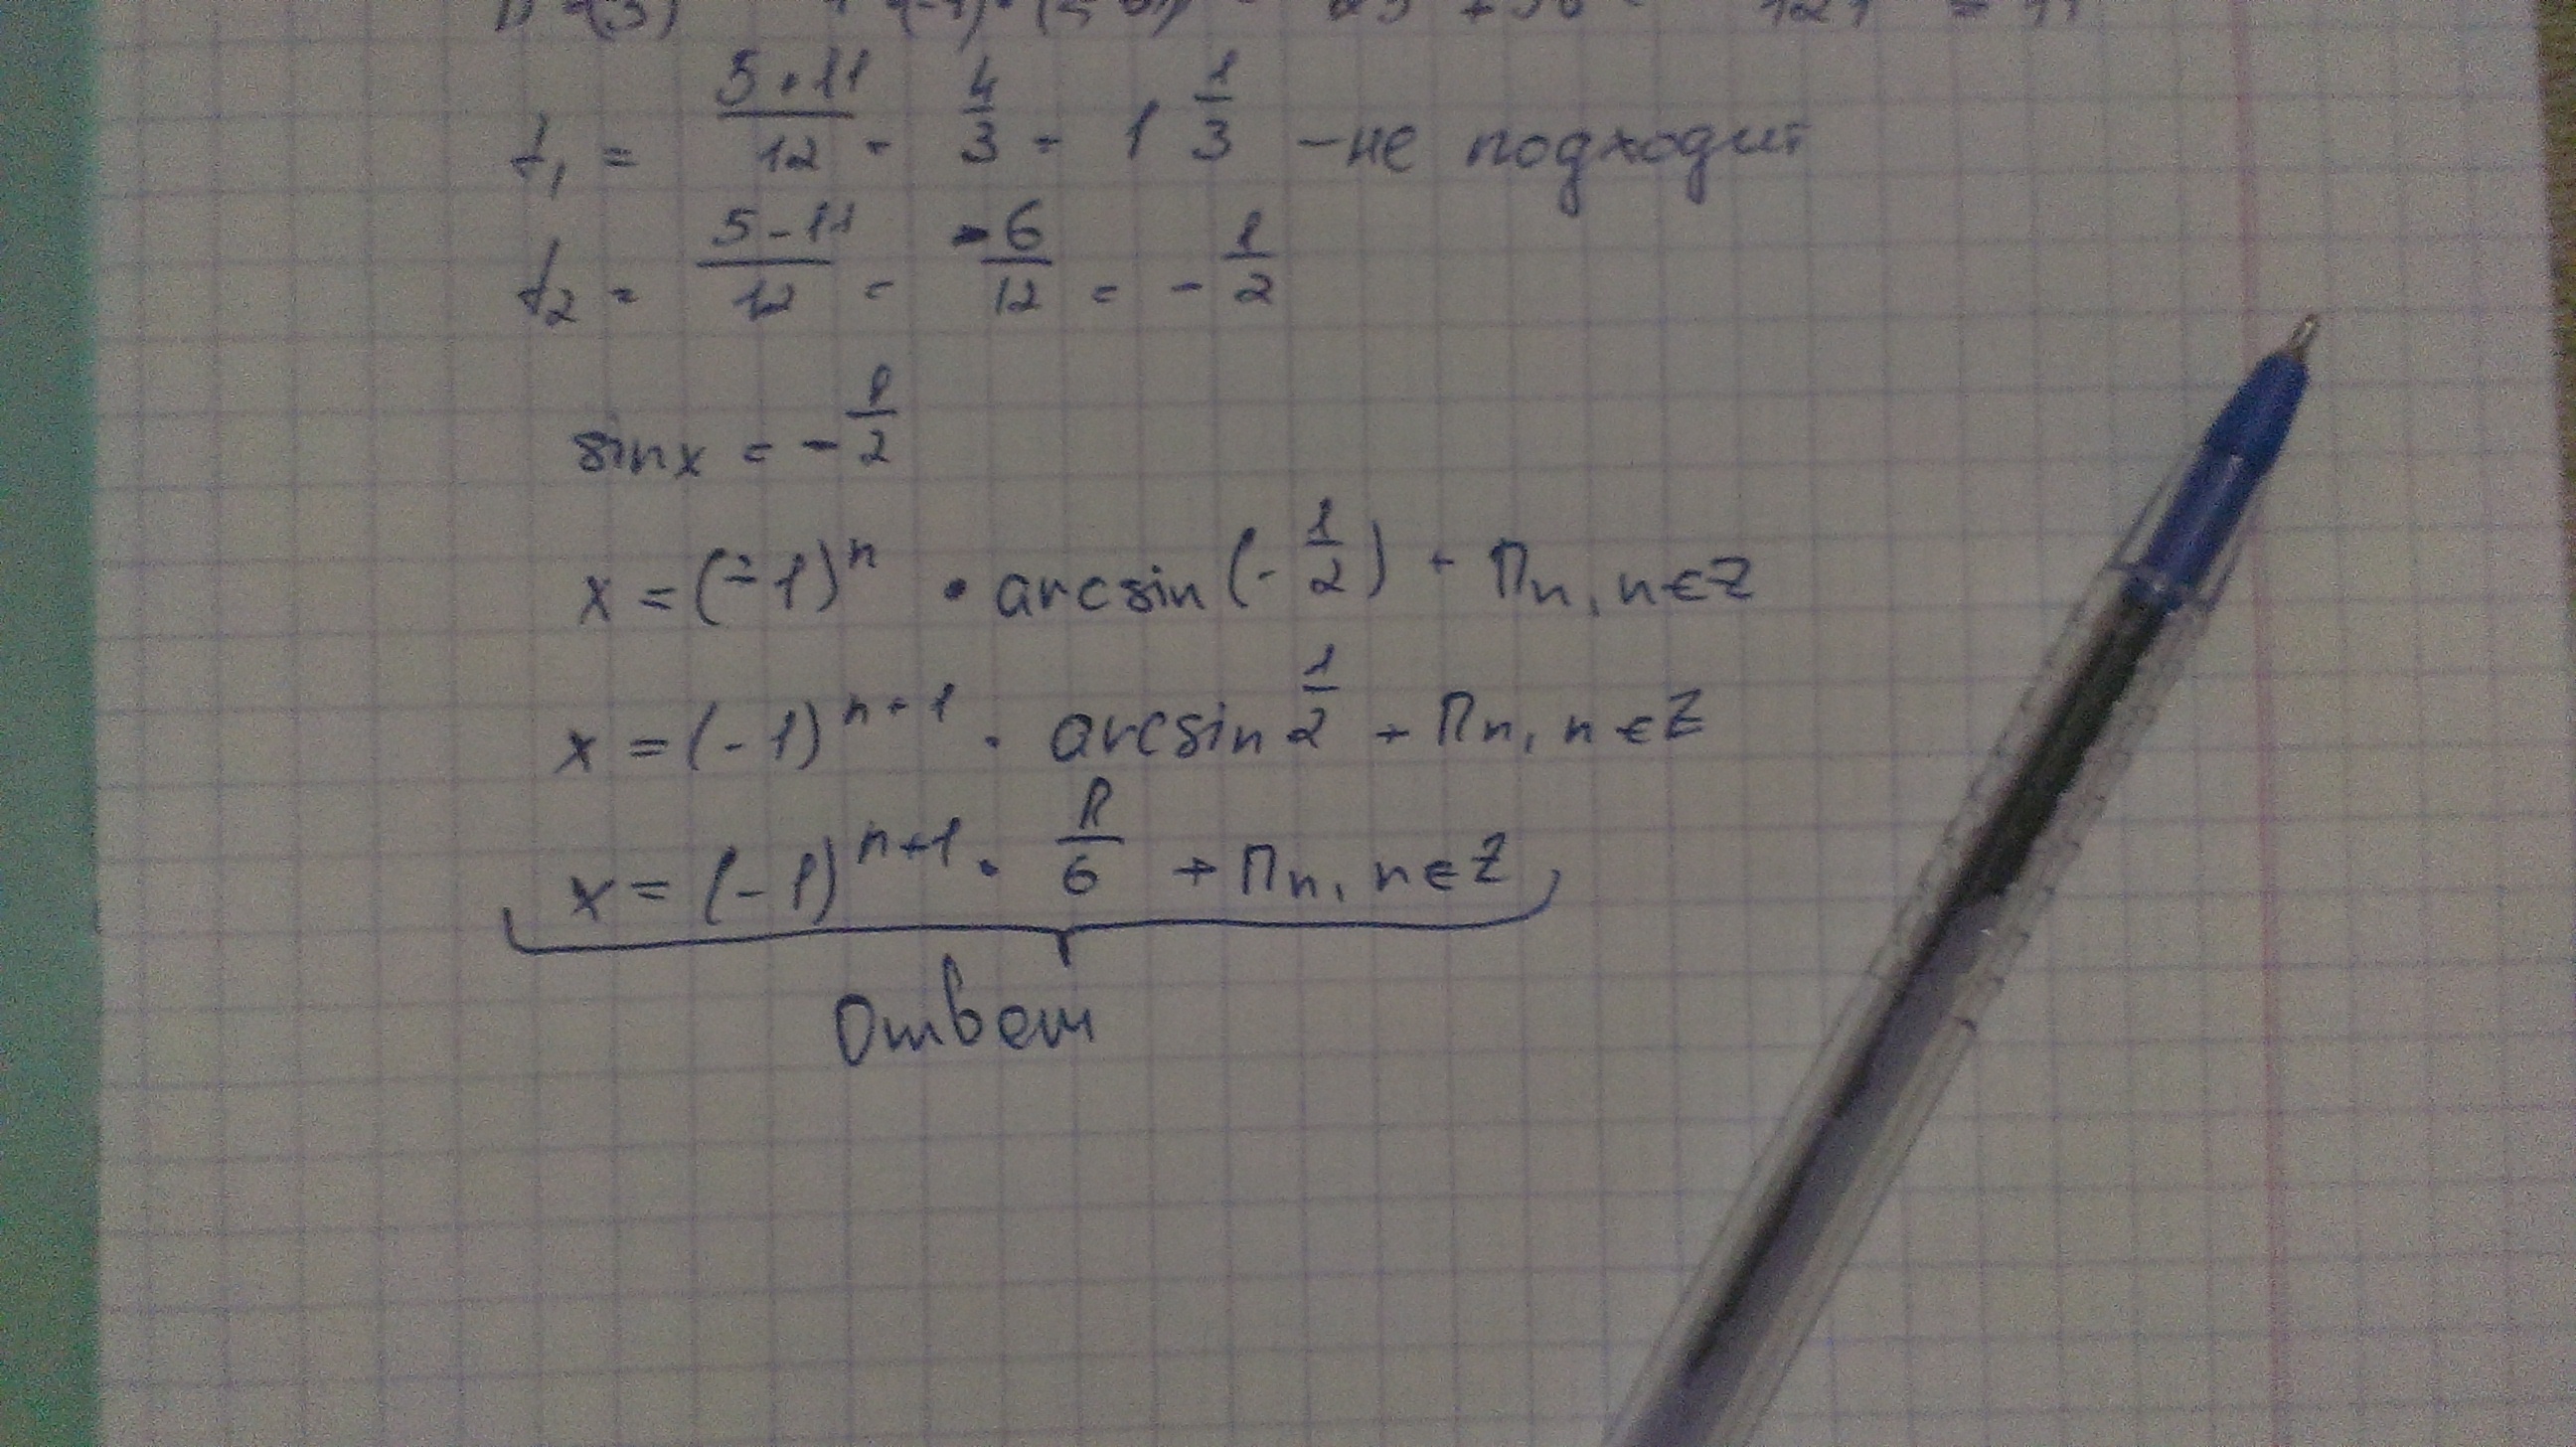 t₁ = (5+11)/12 = 4/3 = 1 1/3 – не подходит
t₂ = (5-11)/12 = -6/12 = -1/2
sinx = -1/2
x = (-1)ⁿ · arcsin(-1/2) + Пn, n∈Z
x = (-1)ⁿ⁺¹ · arcsin 1/2 + Пn, n∈Z
x = (-1)ⁿ⁺¹ · П/6 + Пn, n∈Z
Ответ